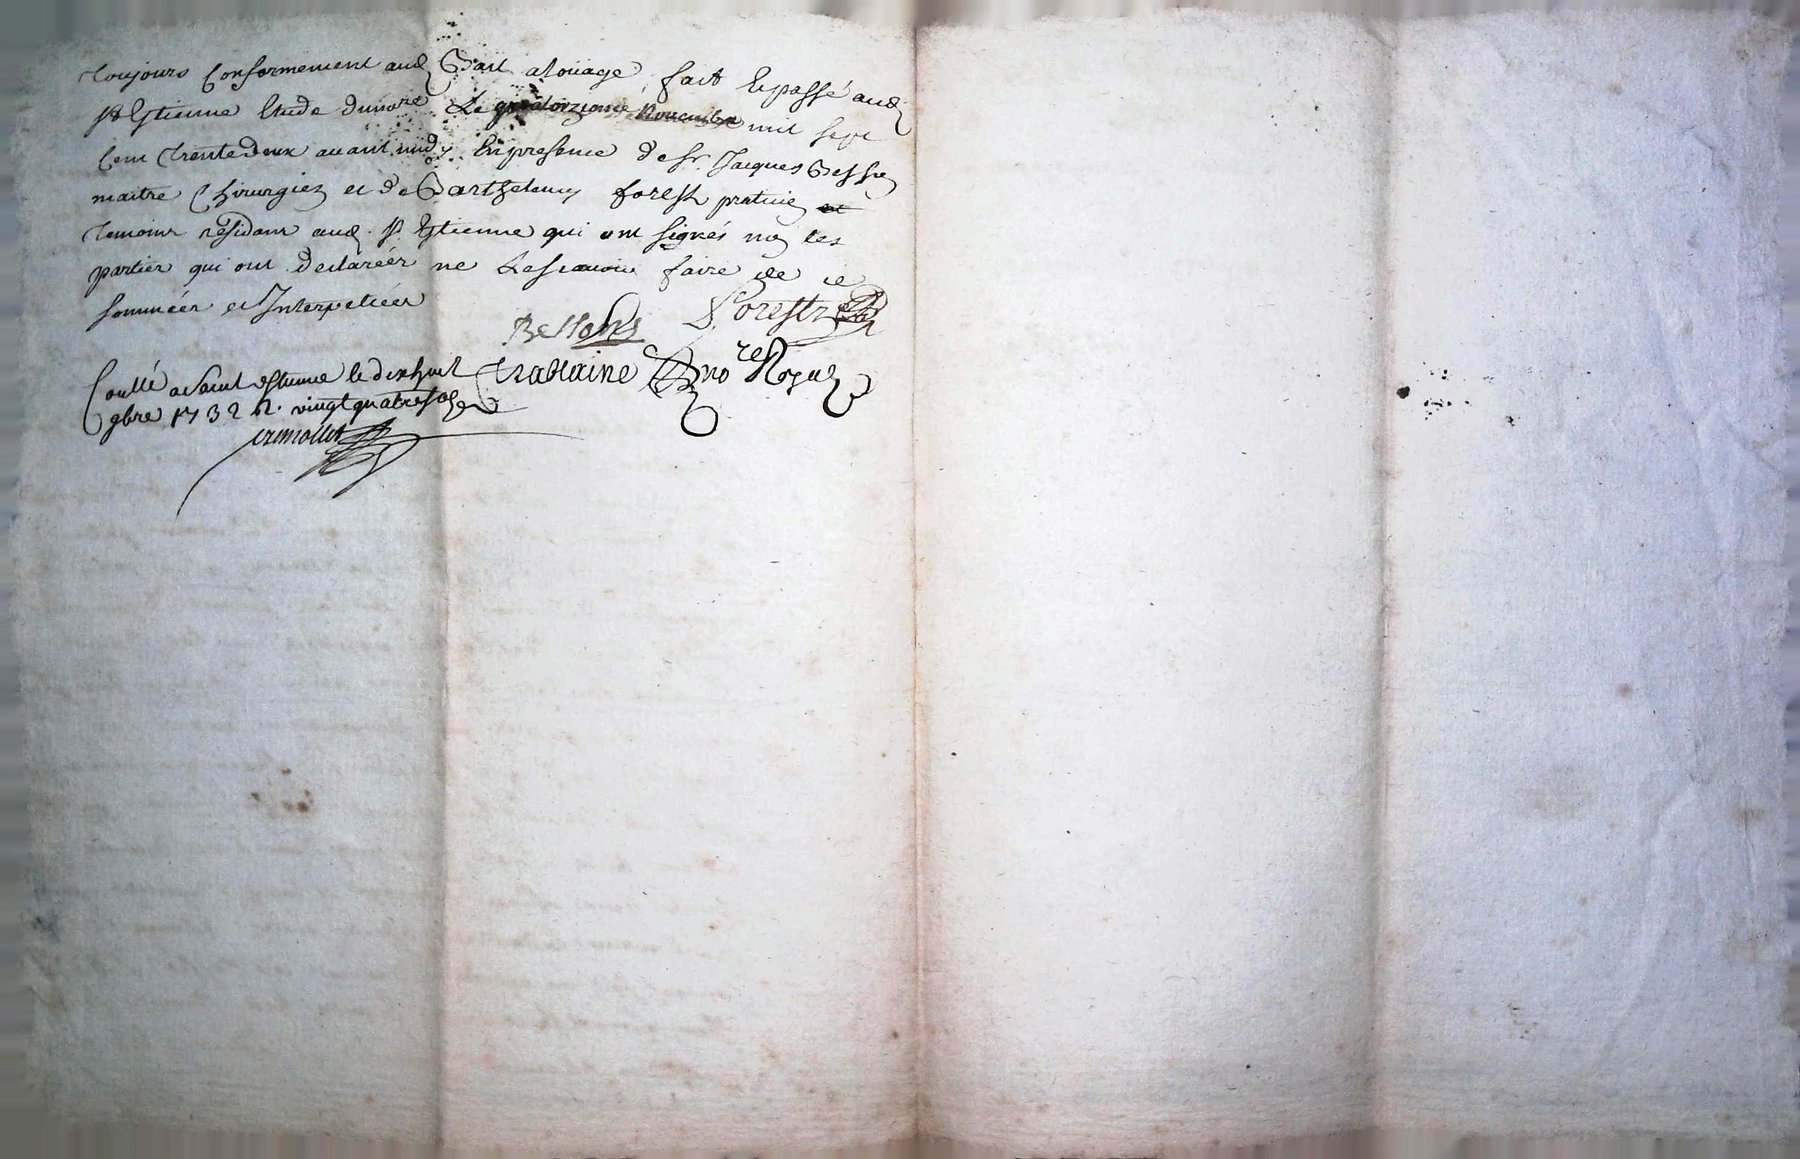 toujours conformement aud Bail alouage, fait & passé aud
St Estienne Etude dunore Le quatorzieme Novembre mil sept
cent trente deux avant midy En presence de sr. Jacques
maitre Chirurgien et de Barthelemy forest praticien et
temoins residans aud. St Estienne qui ont signés non les
parties qui ont declareér ne Lescavoir faire de ce
sommeér et Interpelleér
Forest
Trablaine no re Royal
Conllé a saint estienne le dix huit
9bre 1732 R. vingt quatre sols